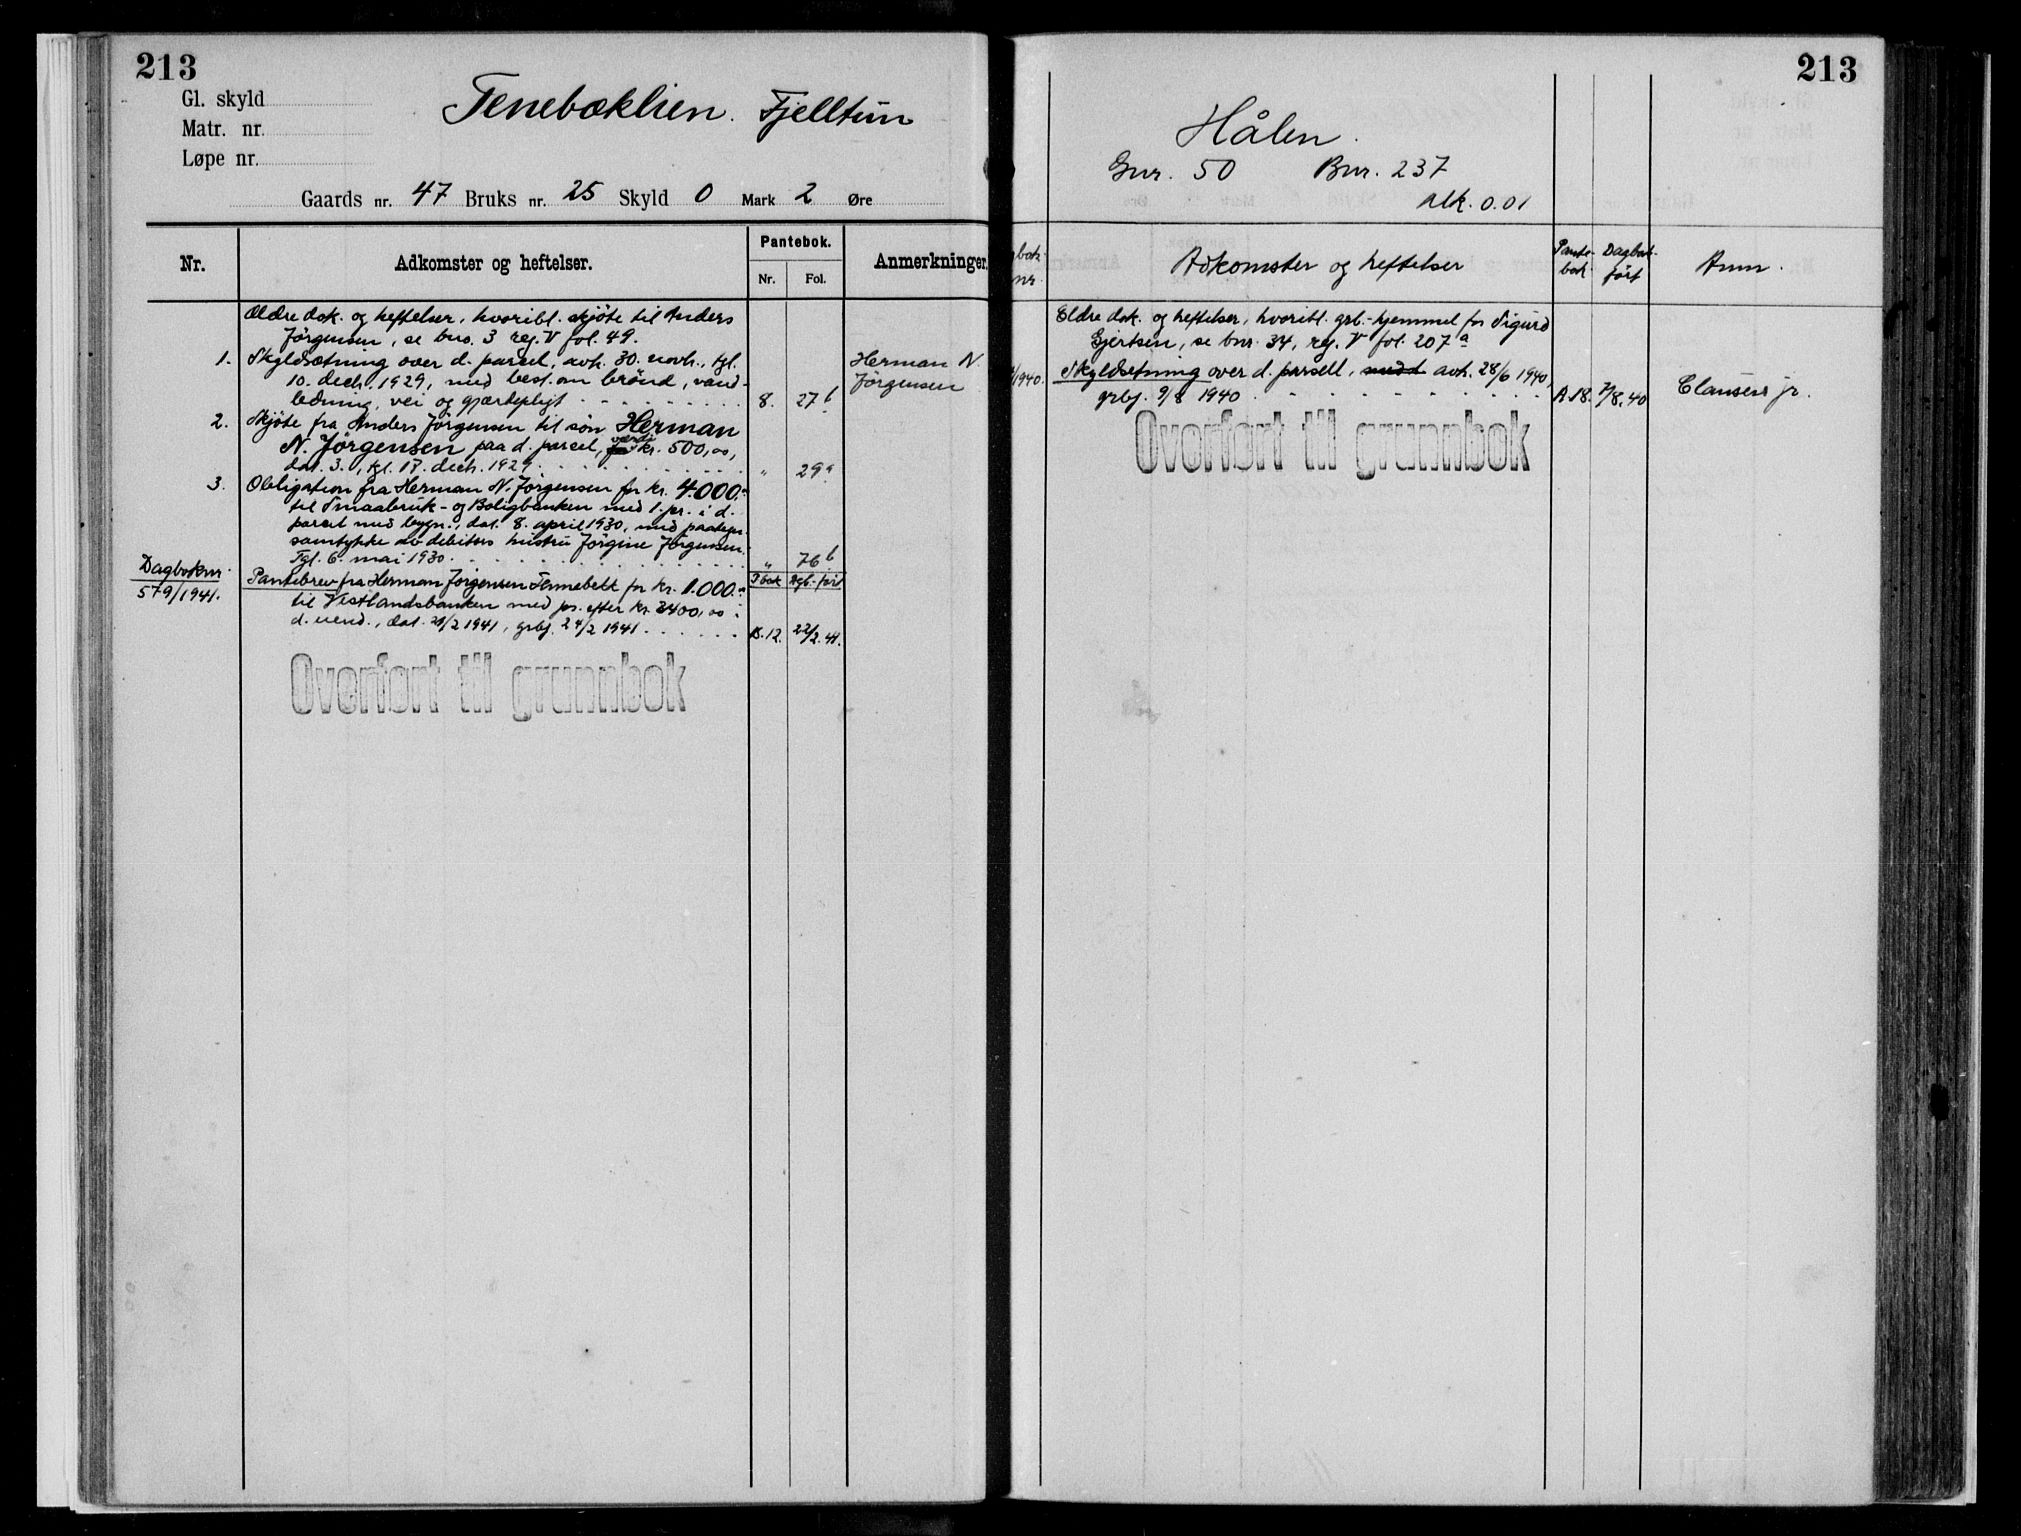 213
Gl. skyld
Matr. nr.
Løpe nr.
Tenebæklien. Fjelltun
Gaards nr. 47 Bruks nr. 25 Skyld 0 Mark 2 Øre
Nr.
Adkomster og heftelser.
Pantebok.
Nr. Fol.
Anmerkninger.
Ældre dok. og heftelser, hvoribl. skjöte til Anders
Jörgensen, se bno. 3 reg. V fol. 49.
1. Skyldsætning over d. parsel, avh. 30. novb., tgl.
10. decb. 1929, med best. om brönd, vand-
ledning, vei og gjærdepligt 8. 27 b
Herman N.
Jörgensen
2. Skjöte fra Anders Jörgensen til sön Herman
N. Jörgensen paa d. parcel, værdi kr. 500,00,
dat. 3., tgl. 17. decb. 1929 " 29 a
3. Obligation fra Herman N. Jörgensen for kr. 4.000.-
til Smaabruk- og Boligbanken med 1. pr. i d.
parcel med bygn., dat. 8. april 1930, med paategn.
samtykke av debitors hustru Jörgine Jörgensen.
Tgl. 6. mai 1930 " 76 b
Dagboknr.
579/1941.
P.bok Dgb.-ført
Pantebrev fra Herman Jörgensen Tennebekk for kr. 1.000.-
til Vestlandsbanken med pr. efter kr. 3400,00 i
d. eiend., dat. 21/2 1941, grbf. 24/2 1941 B.12. 22/2.41.
Overført til grunnbok
213
Hålen.
Gnr. 50 Bnr. 237
0.01
gbok-
nr.
Adkomster og heftelser
Pante-
bok
Dagbok-
ført
Anm.
Eldre dok. og heftelser, hvoribl. grb.-hjemmel for Sigurd
Gjertsen, se bnr. 34, reg. V fol. 207 a
/1940. Skyldsetning over d. parsell, avh. 28/6 1940,
grbf. 9/8 1940 A.18. 7/8.40 Clausen jr.
Overført til grunnbok